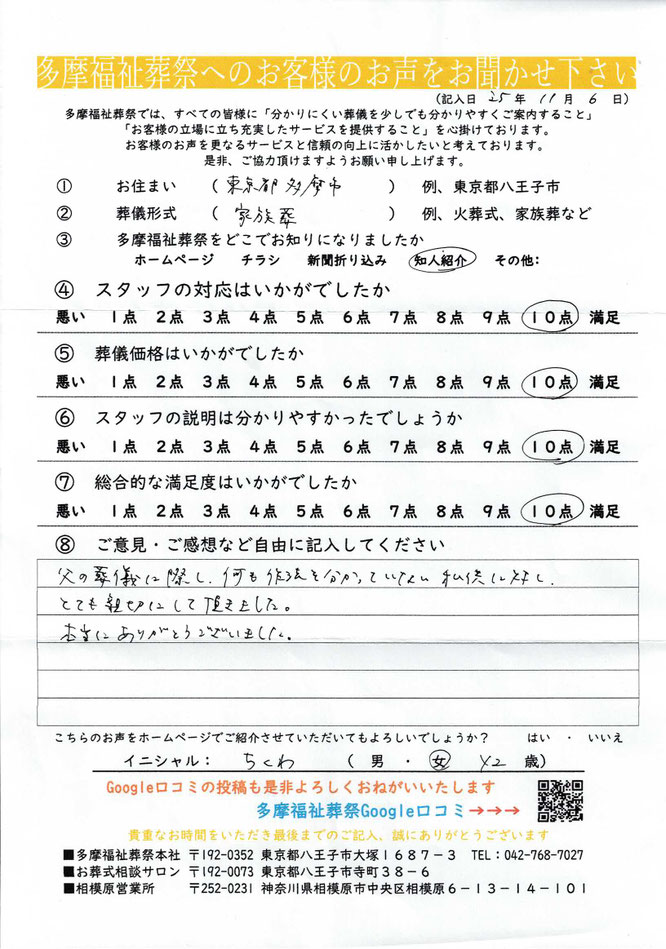 多摩福祉葬祭へのお客様のお声をお聞かせ下さい
(記入日 25 年 11 月 6 日)
多摩福祉葬祭では、すべての皆様に「分かりにくい葬儀を少しでも分かりやすくご案内すること」
「お客様の立場に立ち充実したサービスを提供すること」を心掛けております。
お客様のお声を更なるサービスと信頼の向上に活かしたいと考えております。
是非、ご協力頂けますようお願い申し上げます。
① お住まい (東京都多摩市) 例、東京都八王子市
② 葬儀形式 (家族葬) 例、火葬式、家族葬など
③ 多摩福祉葬祭をどこでお知りになりましたか
ホームページ チラシ 新聞折り込み 知人紹介 その他:
④ スタッフの対応はいかがでしたか
悪い 1点 2点 3点 4点 5点 6点 7点 8点 9点 10点 満足
⑤ 葬儀価格はいかがでしたか
悪い 1点 2点 3点 4点 5点 6点 7点 8点 9点 10点 満足
⑥ スタッフの説明は分かりやすかったでしょうか
悪い 1点 2点 3点 4点 5点 6点 7点 8点 9点 10点 満足
⑦ 総合的な満足度はいかがでしたか
悪い 1点 2点 3点 4点 5点 6点 7点 8点 9点 10点 満足
⑧ ご意見・ご感想など自由に記入してください
父の葬儀に際し、何も作法を分かっていない私供に対し、
とても親切にして頂きました。
本当にありがとうございました。
こちらのお声をホームページでご紹介させていただいてもよろしいでしょうか? はい ・ いいえ
イニシャル: ちくわ (男 ・ 女 42 歳)
Google口コミの投稿も是非よろしくおねがいいたします
多摩福祉葬祭Google口コミ→→→
貴重なお時間をいただき最後までのご記入、誠にありがとうございます
■多摩福祉葬祭本社 〒192-0352 東京都八王子市大塚1687-3 TEL:042-768-7027
■お葬式相談サロン 〒192-0073 東京都八王子市寺町38-6
■相模原営業所 〒252-0231 神奈川県相模原市中央区相模原6-13-14-101